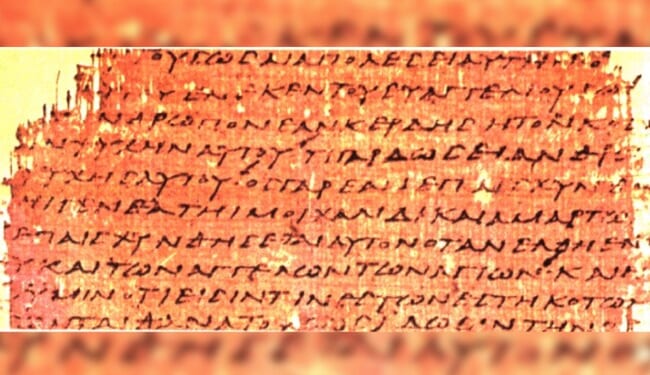 ΟΥϹΩϹΑΙΑΠΟΛΕϹΕΙΑΥΤΗΝ
ΕΝΕΚΕΝΤΟΥΕΥΑΓΓΕΛΙΟΥ
ΝΘΡΩΠΟΝΕΑΝΚΕΡΔΗϹΗΤΟΝΚ
ΨΥΧΗΝΑΥΤΟΥΤΙΓΑΡΔΩϹΕΙΑΝΘΡ
ΥΧΗϹΑΥΤΟΥΟϹΓΑΡΕΑΝΕΠΑΙϹΧΥΝ
ΓΕΝΕΑΤΗΜΟΙΧΑΛΙΔΙΚΑΙΑΜΑΡΤΩ
ΕΠΑΙϹΧΥΝΘΗϹΕΤΑΙΑΥΤΟΝΟΤΑΝΕΛΘΗΕΝ
ΚΑΙΤΩΝΑΓΓΕΛΩΝΤΩΝΑΓΙΩΝΚΑΙ
ΥΜΙΝΟΤΙΕΙϹΙΝΤΙΝΕϹΤΩΝΕϹΤΗΚΟΤΩΝ
ΤΑΙΘΑΝΑΤΟΥΕΩϹΙΔΩϹΙΝΤΗΝ